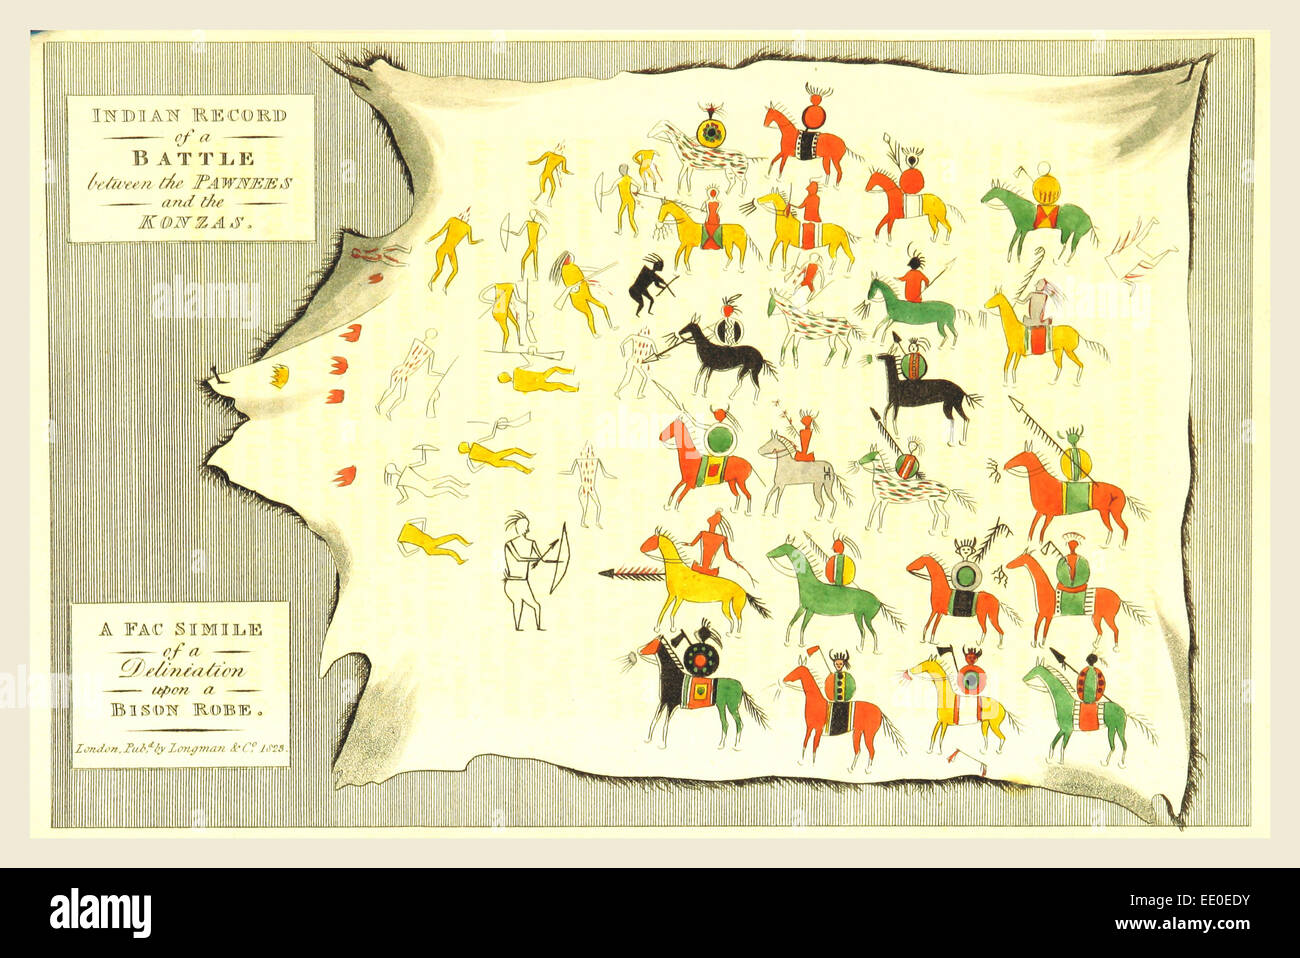 INDIAN RECORD
of a
BATTLE
between the PAWNEES
and the
KONZAS.
A FAC SIMILE
of a
Delineation
upon a
BISON ROBE.
London, Pub.d by Longman & Co. 1823.
alamy
alamy
Image ID: EE0EDY
www.alamy.com